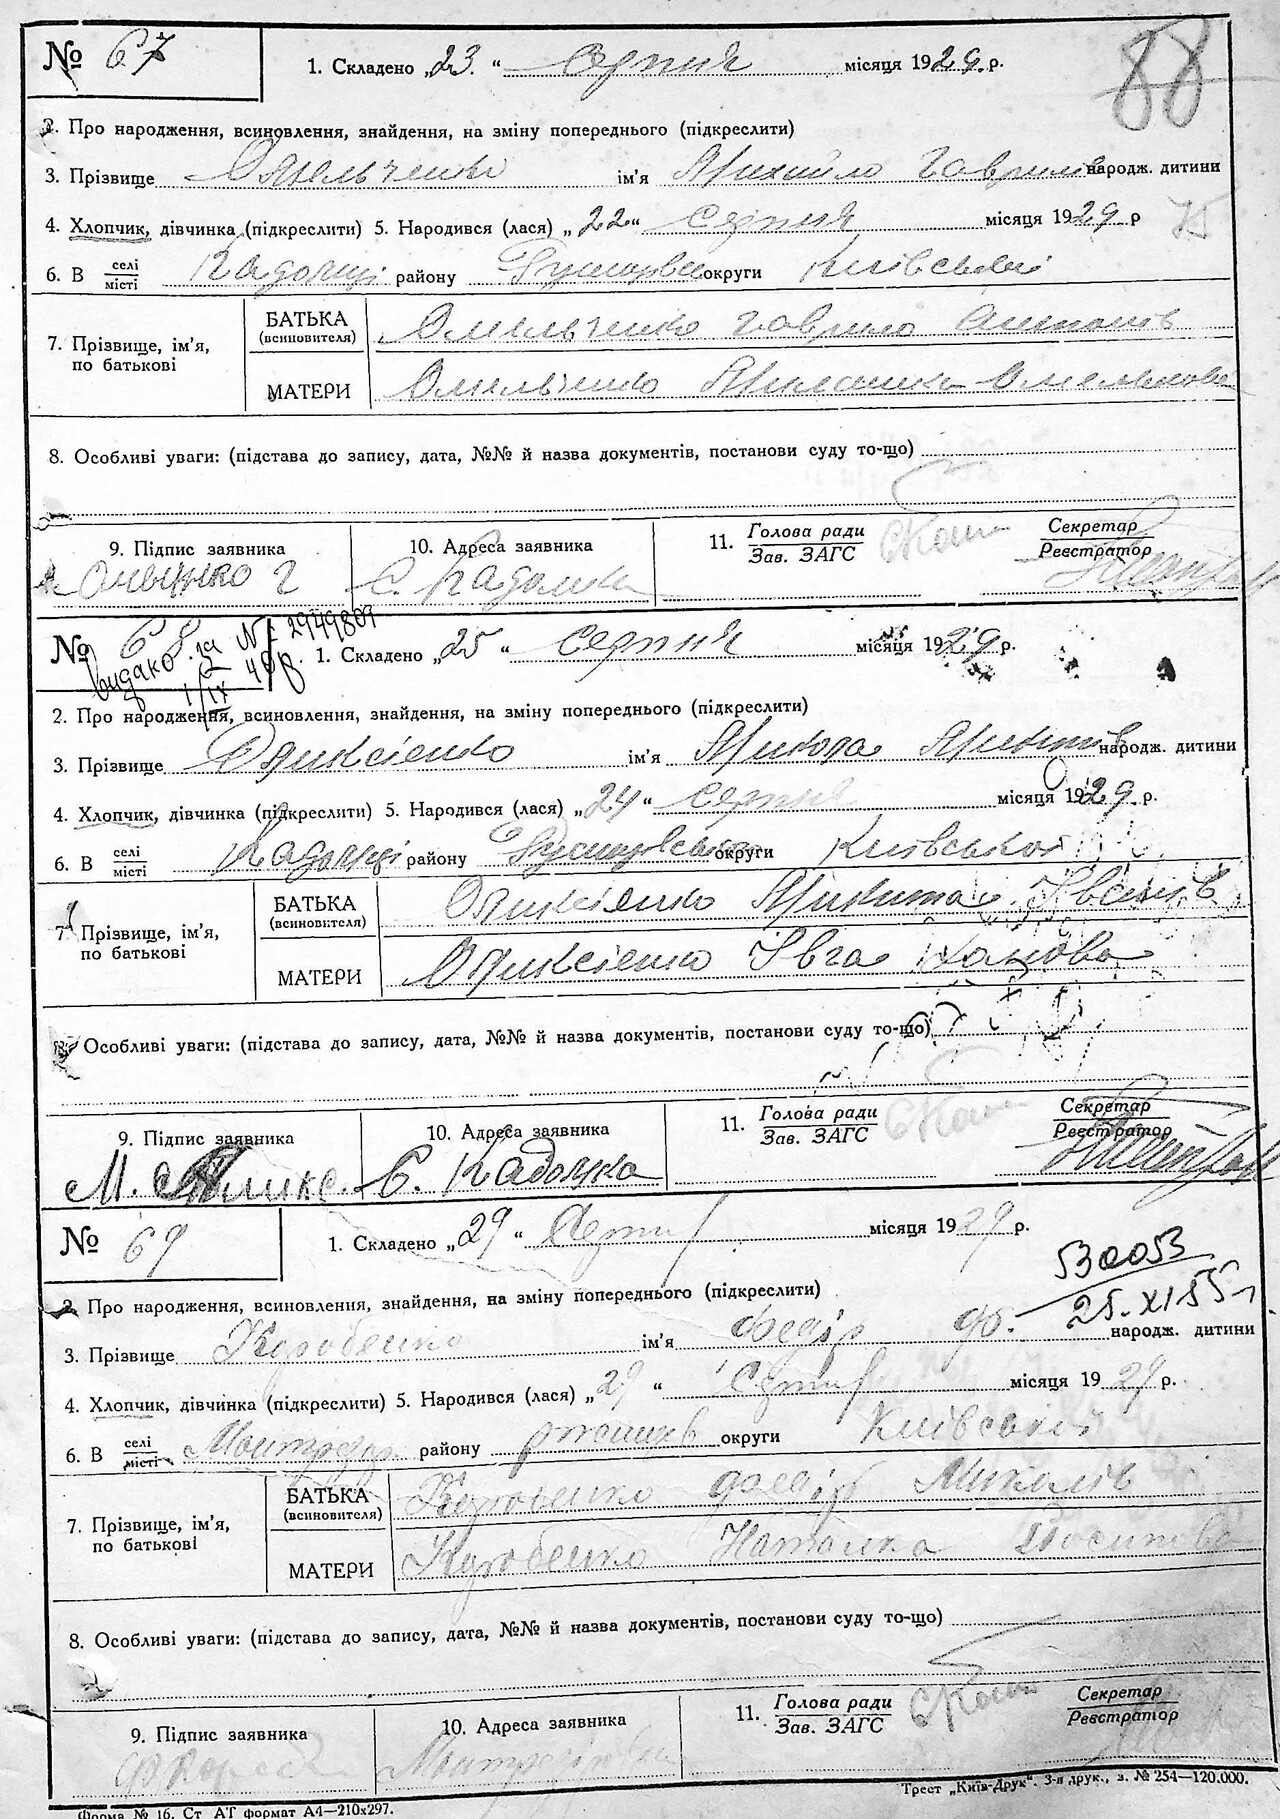 № 67
1. Складено „23 “ Серпня місяця 1929 р.
88
2. Про народження, всиновлення, знайдення, на зміну попереднього (підкреслити)
3. Прізвище Омельченко ім'я Михайло Гаврилів народж. дитини
4. Хлопчик, дівчинка (підкреслити) 5. Народився (лася) „ 22 “ Серпня місяця 1929 р
6. В селі/місті Кадомці району округи Київської
7. Прізвище, ім'я, по батькові
БАТЬКА (всиновителя) Омельченко Гаврило
МАТЕРИ Омельченко Омелькова
8. Особливі уваги: (підстава до запису, дата, №№ й назва документів, постанови суду то-що)
9. Підпис заявника
10. Адреса заявника
11. Голова ради/Зав. ЗАГС
Секретар/Реєстратор
с. Кадомка
№ 68
Видано
№ 2949809
1. Складено „25 “ Серпня місяця 1929 р.
2. Про народження, всиновлення, знайдення, на зміну попереднього (підкреслити)
3. Прізвище ім'я Микола Микитів народж. дитини
4. Хлопчик, дівчинка (підкреслити) 5. Народився (лася) „ 24 “ серпня місяця 1929 р.
6. В селі/місті Кадомці району округи Київської
7. Прізвище, ім'я, по батькові
БАТЬКА (всиновителя) Микита Іванів
МАТЕРИ Івга
8. Особливі уваги: (підстава до запису, дата, №№ й назва документів, постанови суду то-що)
9. Підпис заявника
10. Адреса заявника
11. Голова ради/Зав. ЗАГС
Секретар/Реєстратор
С. Кадомка
№ 69
1. Складено „29 “ Серпня місяця 1929 р.
530053
25.XI 55
2. Про народження, всиновлення, знайдення, на зміну попереднього (підкреслити)
3. Прізвище Коробенко ім'я Федір Ф. народж. дитини
4. Хлопчик, дівчинка (підкреслити) 5. Народився (лася) „ 29 “ Серпня місяця 1929 р.
6. В селі/місті району ржищів округи Київській
7. Прізвище, ім'я, по батькові
БАТЬКА (всиновителя) Коробенко Федір Миколів
МАТЕРИ Коробенко Наталка Йосипова
8. Особливі уваги: (підстава до запису, дата, №№ й назва документів, постанови суду то-що)
9. Підпис заявника
10. Адреса заявника
11. Голова ради/Зав. ЗАГС
Секретар/Реєстратор
Форма № 16. Ст АТ формат А4—210х297.
Трест „Київ-Друк“. 3-я друк., з. № 254—120.000.